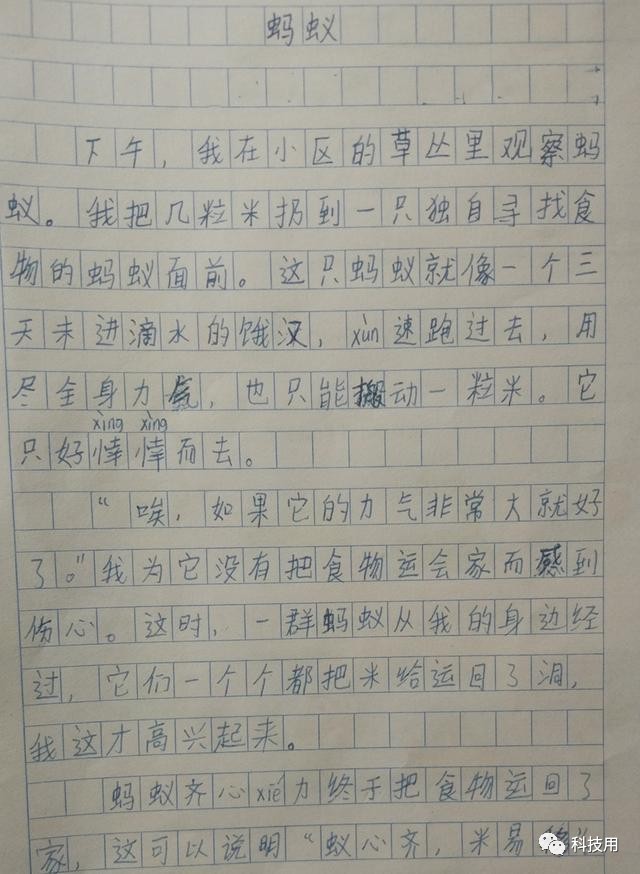 蚂蚁
下午，我在小区的草丛里观察蚂
蚁。我把几粒米扔到一只独自寻找食
物的蚂蚁面前。这只蚂蚁就像一个三
天未进滴水的饿汉，xùn速跑过去，用
尽全身力氣，也只能搬动一粒米。它
xìng xìng
只好悻悻而去。
“唉，如果它的力气非常大就好
了。”我为它没有把食物运会家而感到
伤心。这时，一群蚂蚁从我的身边经
过，它们一个个都把米给运回了洞，
我这才高兴起来。
蚂蚁齐心xié力终于把食物运回了
家，这可以说明“蚁心齐，米易
科技用